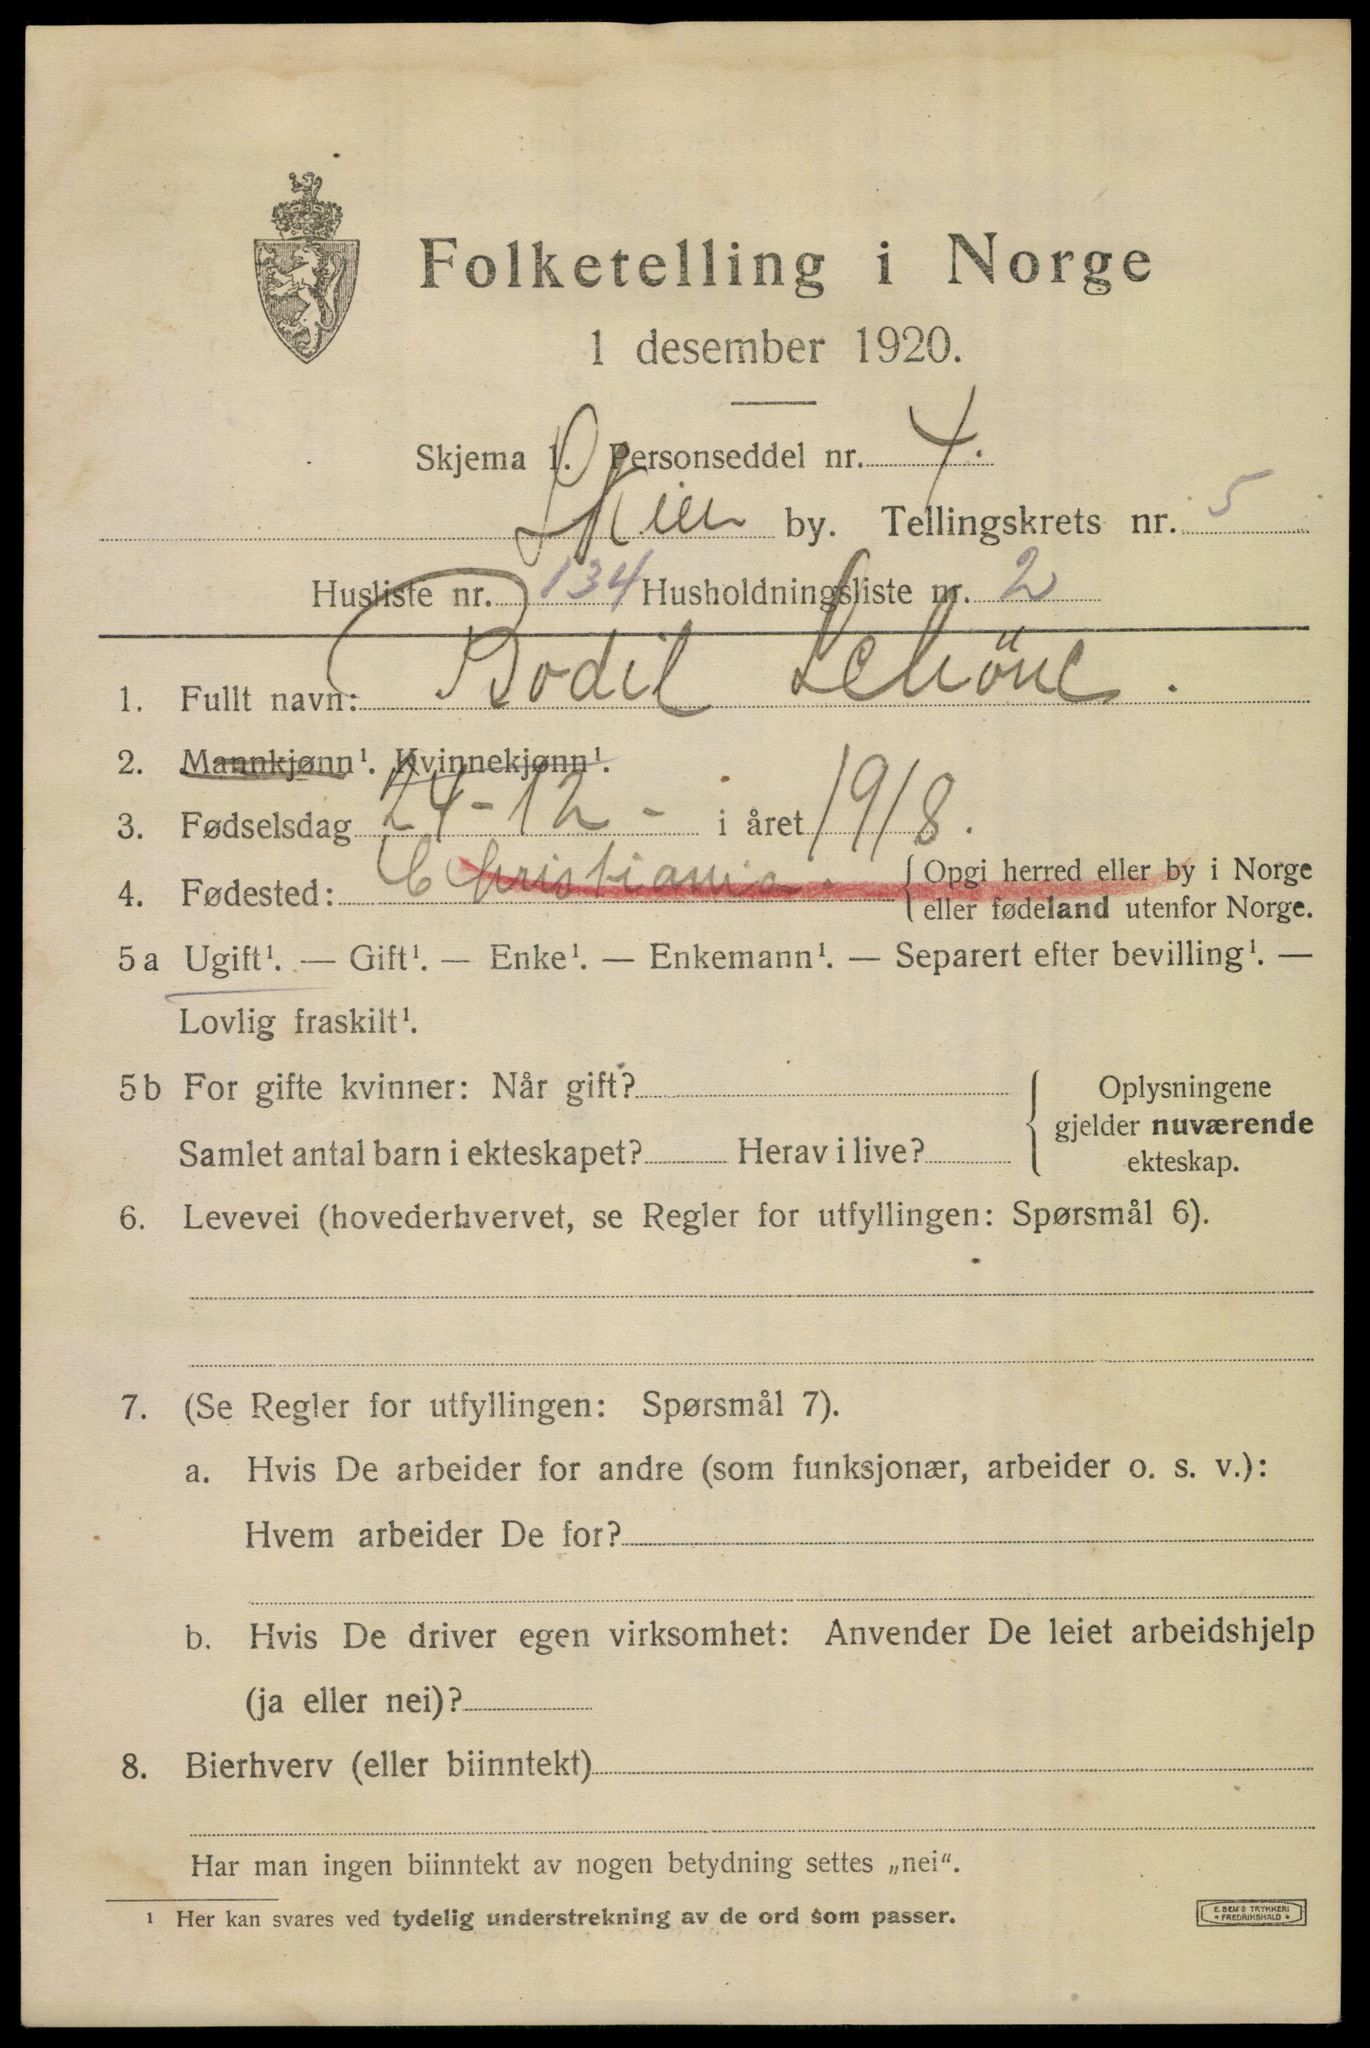 Folketelling i Norge
1 desember 1920.
Skjema 1. Personseddel nr. 4.
Skien by. Tellingskrets nr. 5
Husliste nr. 134 Husholdningsliste nr. 2
1. Fullt navn: Bodil Schöne.
2. Mannkjønn¹. Kvinnekjønn¹.
3. Fødselsdag 24-12- i året 1918.
4. Fødested: Christiania. Opgi herred eller by i Norge
eller fødeland utenfor Norge.
5a Ugift¹. — Gift¹. — Enke¹. — Enkemann¹. — Separert efter bevilling¹. —
Lovlig fraskilt¹.
5b For gifte kvinner: Når gift? Oplysningene
gjelder nuværende
Samlet antal barn i ekteskapet? Herav i live? ekteskap.
6. Levevei (hovederhvervet, se Regler for utfyllingen: Spørsmål 6).
7. (Se Regler for utfyllingen: Spørsmål 7).
a. Hvis De arbeider for andre (som funksjonær, arbeider o. s. v.):
Hvem arbeider De for?
b. Hvis De driver egen virksomhet: Anvender De leiet arbeidshjelp
(ja eller nei)?
8. Bierhverv (eller biinntekt)
Har man ingen biinntekt av nogen betydning settes „nei“.
¹ Her kan svares ved tydelig understrekning av de ord som passer.
E. SEM'S TRYKKERI
FREDRIKSHALD